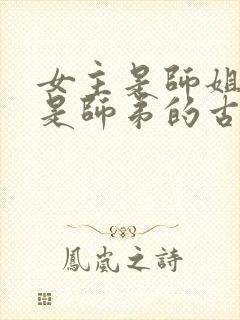 女主是師姐
是師弟的古
鳳嵐之詩